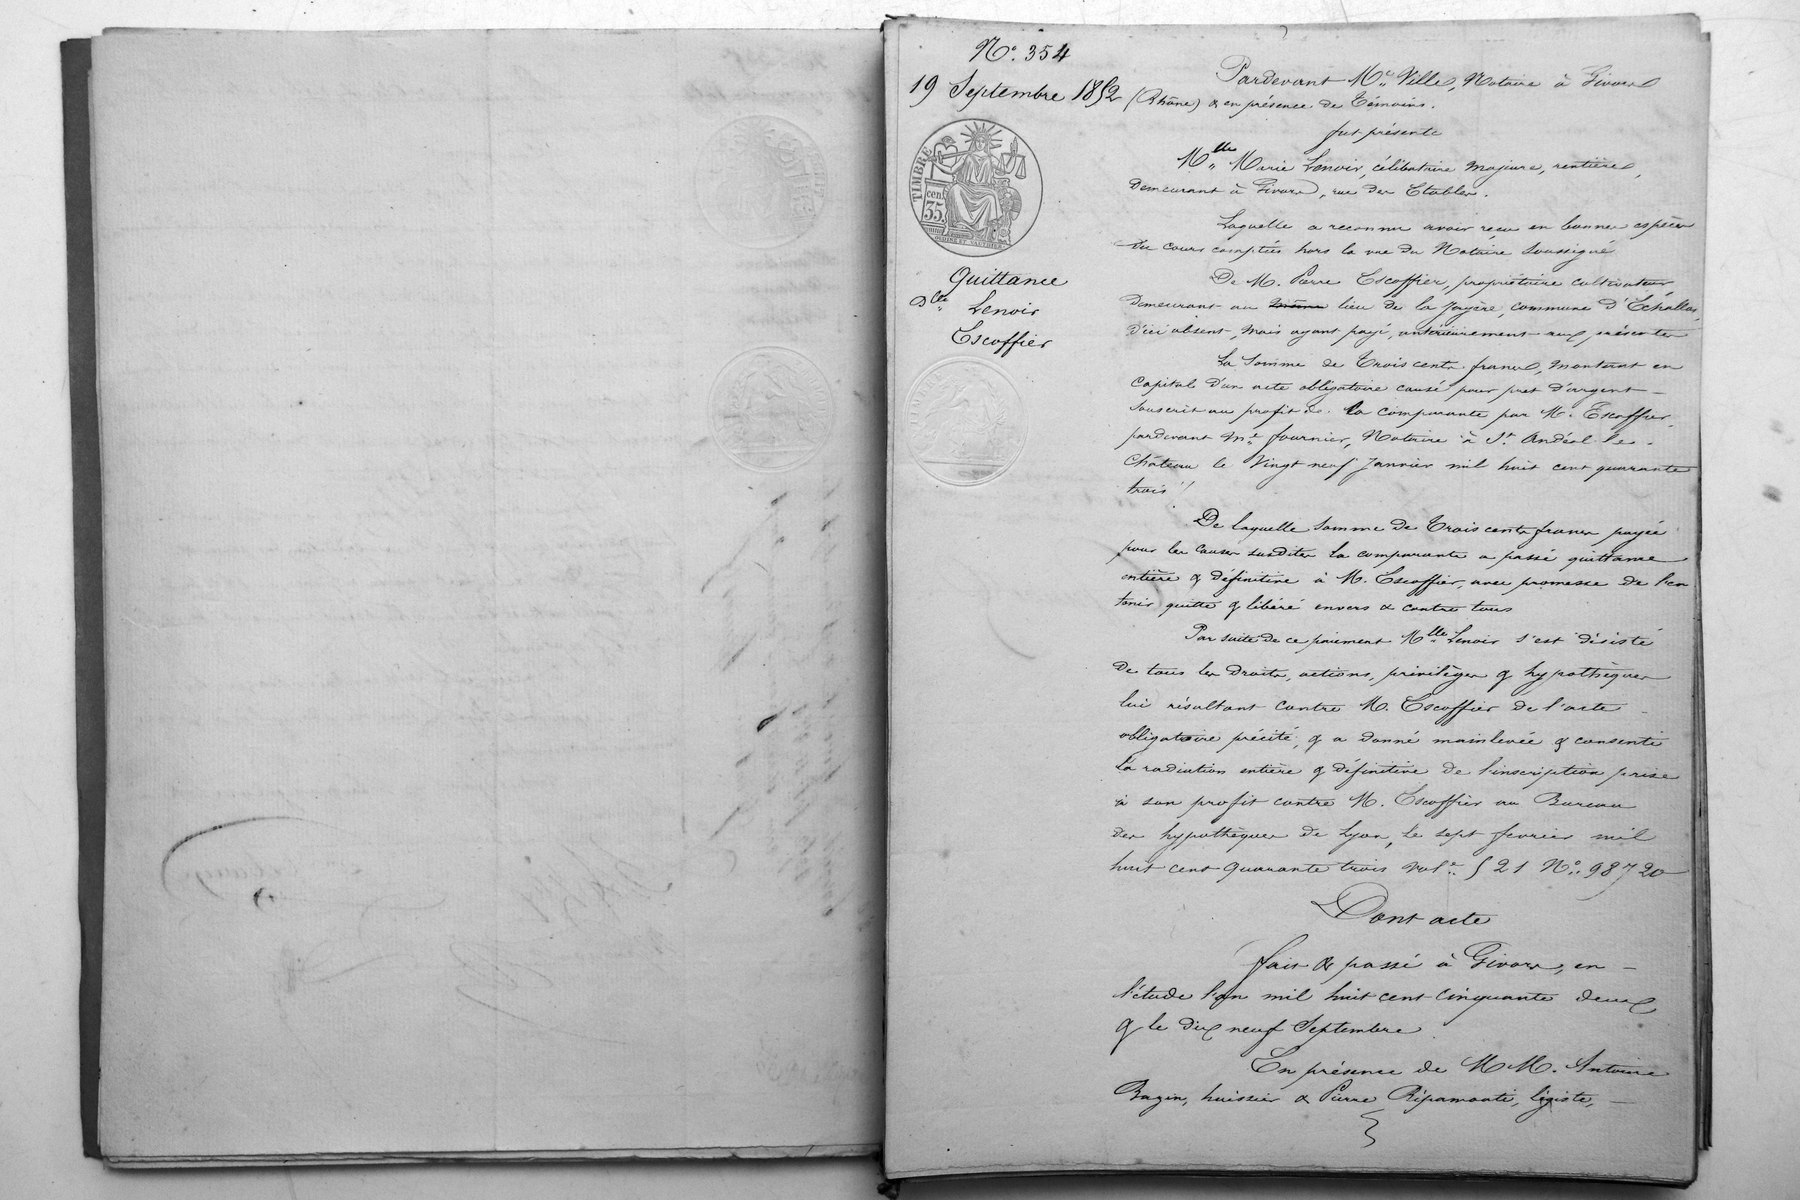 N° 354
19 Septembre 1852
TIMBRE
cen.
35.
Quittance
Dlle Lenoir
Escoffier
Pardevant Me Ville, Notaire à Givors
(Rhône) & en présence de Témoins.
fut présente
Mlle Marie Lenoir, célibataire majeure, rentière,
demeurant à Givors, rue des Etables.
Laquelle a reconnu avoir reçu en bonnes espèces
du cours comptées hors la vue du Notaire soussigné
De M. Pierre Escoffier, propriétaire cultivateur
demeurant au même lieu de la Jayère, commune d'Echallas,
d'ici absent, mais ayant payé, antérieurement aux présentes
La Somme de Trois cents francs, montant en
capital d'un acte obligatoire causé pour prêt d'argent
souscrit au profit de la comparante par M. Escoffier,
pardevant Me fournier, Notaire à St Andéol le
Château le Vingt neuf Janvier mil huit cent quarante
trois
De laquelle somme de Trois cents francs payée
pour les causes susdites la comparante a passé quittance
entière & définitive à M. Escoffier, avec promesse de l'en
tenir quitte & libéré envers & contre tous
Par suite de ce paiement Mlle Lenoir s'est désisté
de tous les droits, actions, privilèges & hypothèques
lui résultant contre M. Escoffier de l'acte
obligatoire précité, & a donné mainlevée & consenti
la radiation entière & définitive de l'inscription prise
à son profit contre M. Escoffier au Bureau
des hypothèques de Lyon, le sept fevrier mil
huit cent quarante trois vol. 521 N° 98720
Dont acte
fait & passé à Givors, en
l'étude l'an mil huit cent cinquante deux
& le dix neuf Septembre
En présence de MM. Antoine
Bazin, huissier & Pierre Ripamonti, légiste,